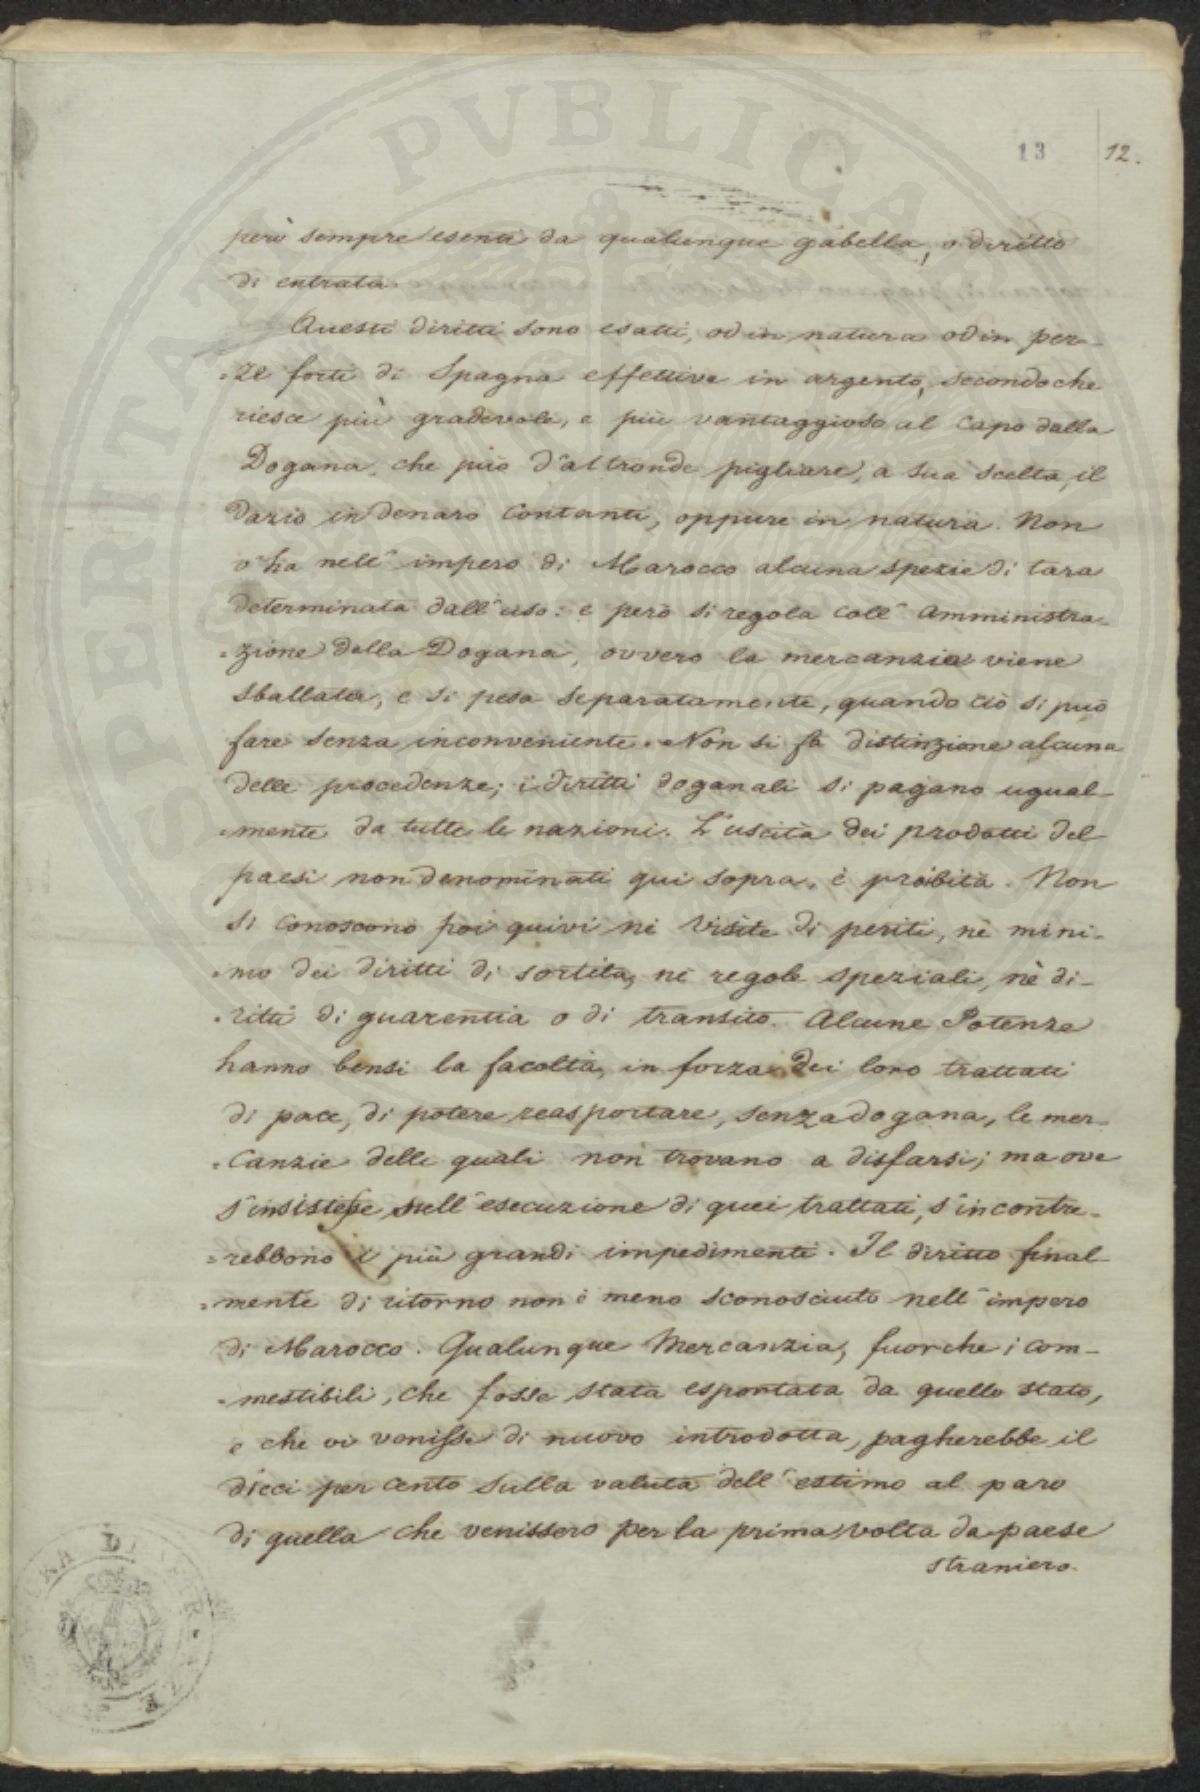 PVBLICA
13 12.
però sempre esenti da qualunque gabella, o diritto
di entrata.
Questi diritti sono esatti, od in natura od in pez-
-ze forti di Spagna effettive in argento, secondo che
riesce più gradevole, e più vantaggioso al capo della
Dogana, che può d'altronde pigliare, a sua scelta, il
dazio in denaro contanti, oppure in natura. Non
v'ha nell'impero di Marocco alcuna spezie di tara
determinata dall'uso: e però si regola coll'amministra-
-zione della Dogana, ovvero la mercanzia viene
sballata, e si pesa separatamente, quando ciò si può
fare senza inconveniente. Non si fa distinzione alcuna
delle procedenze; i diritti doganali si pagano ugual-
-mente da tutte le nazioni. L'uscita dei prodotti del
paesi non denominati qui sopra, è proibita. Non
si conoscono poi quivi nè visite di periti, nè mini-
-mo dei diritti di sortita, nè regole speziali, nè di-
-ritti di guarentia o di transito. Alcune Potenze
hanno bensi la facoltà, in forza dei loro trattati
di pace, di potere reasportare, senza dogana, le mer-
-canzie delle quali non trovano a disfarsi; ma ove
s'insistesse sull'esecuzione di quei trattati, s'incontre-
-rebbono i più grandi impedimenti. Il diritto final-
-mente di ritorno non è meno sconosciuto nell'impero
di Marocco. Qualunque Mercanzia, fuorche i com-
-mestibili, che fosse stata esportata da quello stato,
e che vi venisse di nuovo introdotta, pagherebbe il
dieci per cento sulla valuta dell'estimo al paro
di quella che venissero per la prima volta da paese
straniero.